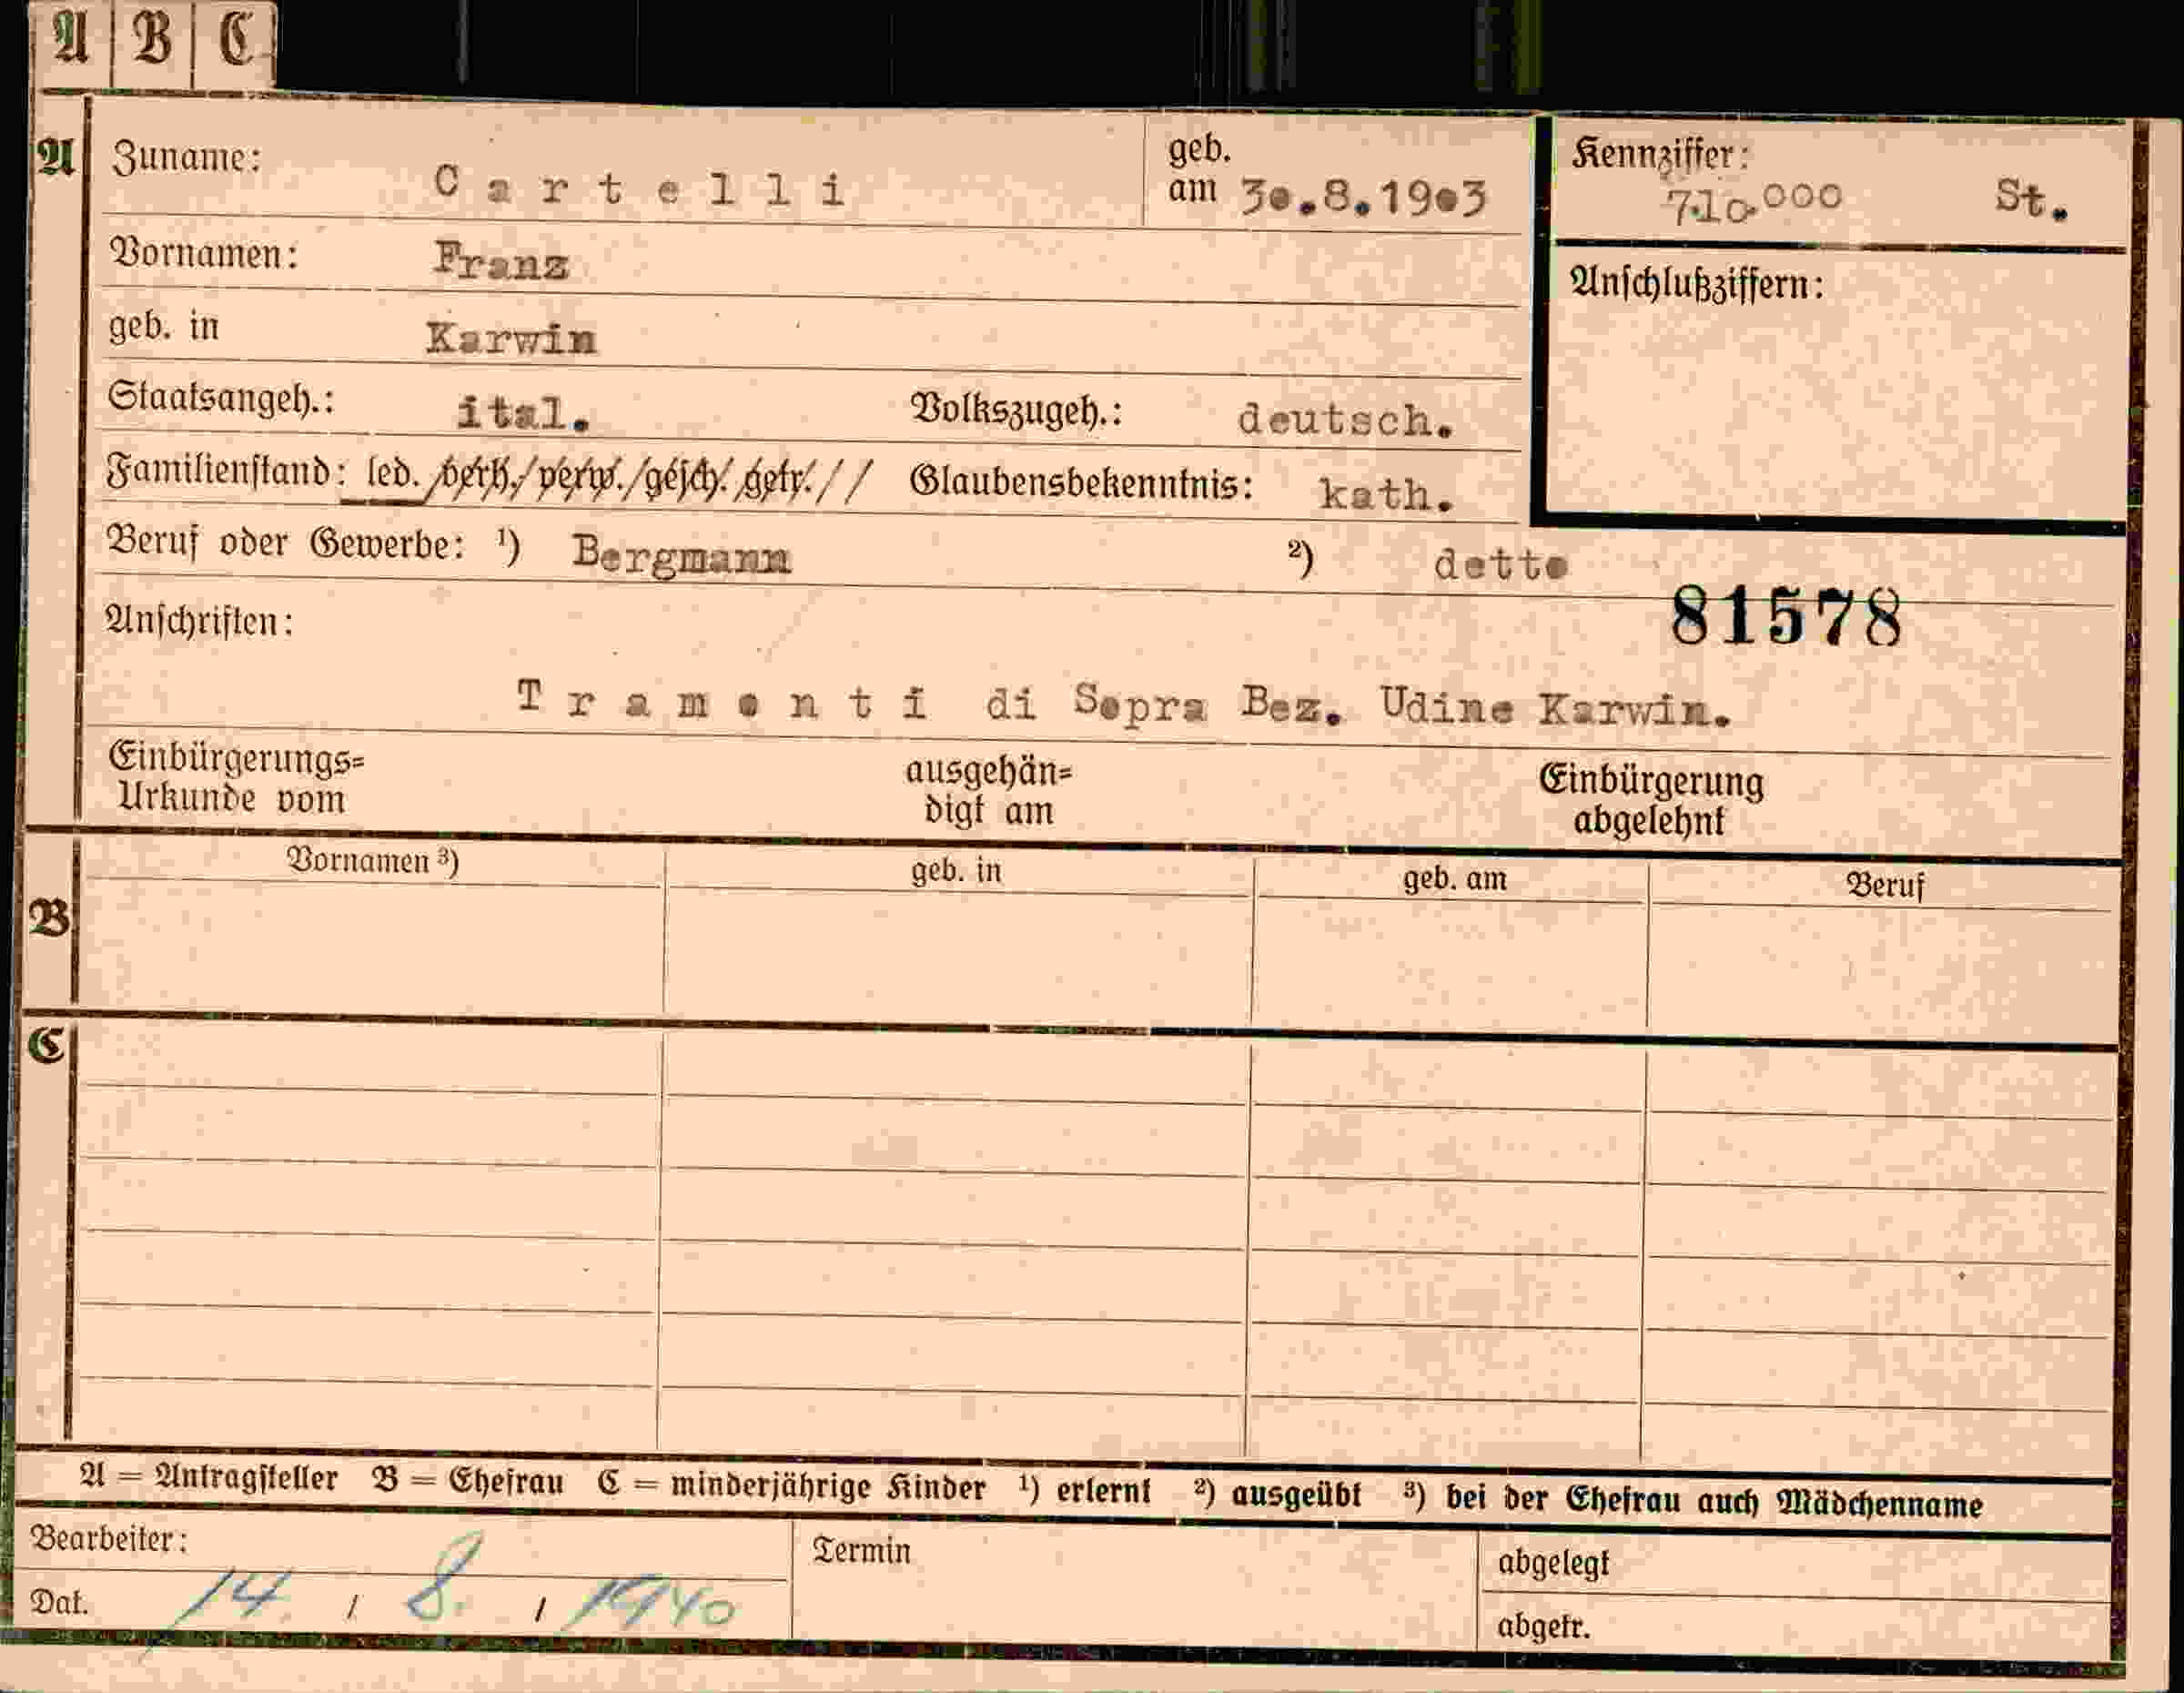 A | B | C
A Zuname: Cartelli geb. am 30.8.1903
Kennziffer: 710.000 St.
Vornamen: Franz
Anschlußziffern:
geb. in Karwin
Staatsangeh.: ital. Volkszugeh.: deutsch.
Familienstand: led./verh./verw./gesch./getr.// Glaubensbekenntnis: kath.
Beruf oder Gewerbe: ¹) Bergmann ²) detto
81578
Anschriften:
Tramonti di Sopra Bez. Udine Karwin.
Einbürgerungs=
Urkunde vom
ausgehän=
digt am
Einbürgerung
abgelehnt
B Vornamen ³) geb. in geb. am Beruf
C
A = Antragsteller B = Ehefrau C = minderjährige Kinder ¹) erlernt ²) ausgeübt ³) bei der Ehefrau auch Mädchenname
Bearbeiter:
Dat. 14 / 8. / 1940
Termin
abgelegt
abgetr.